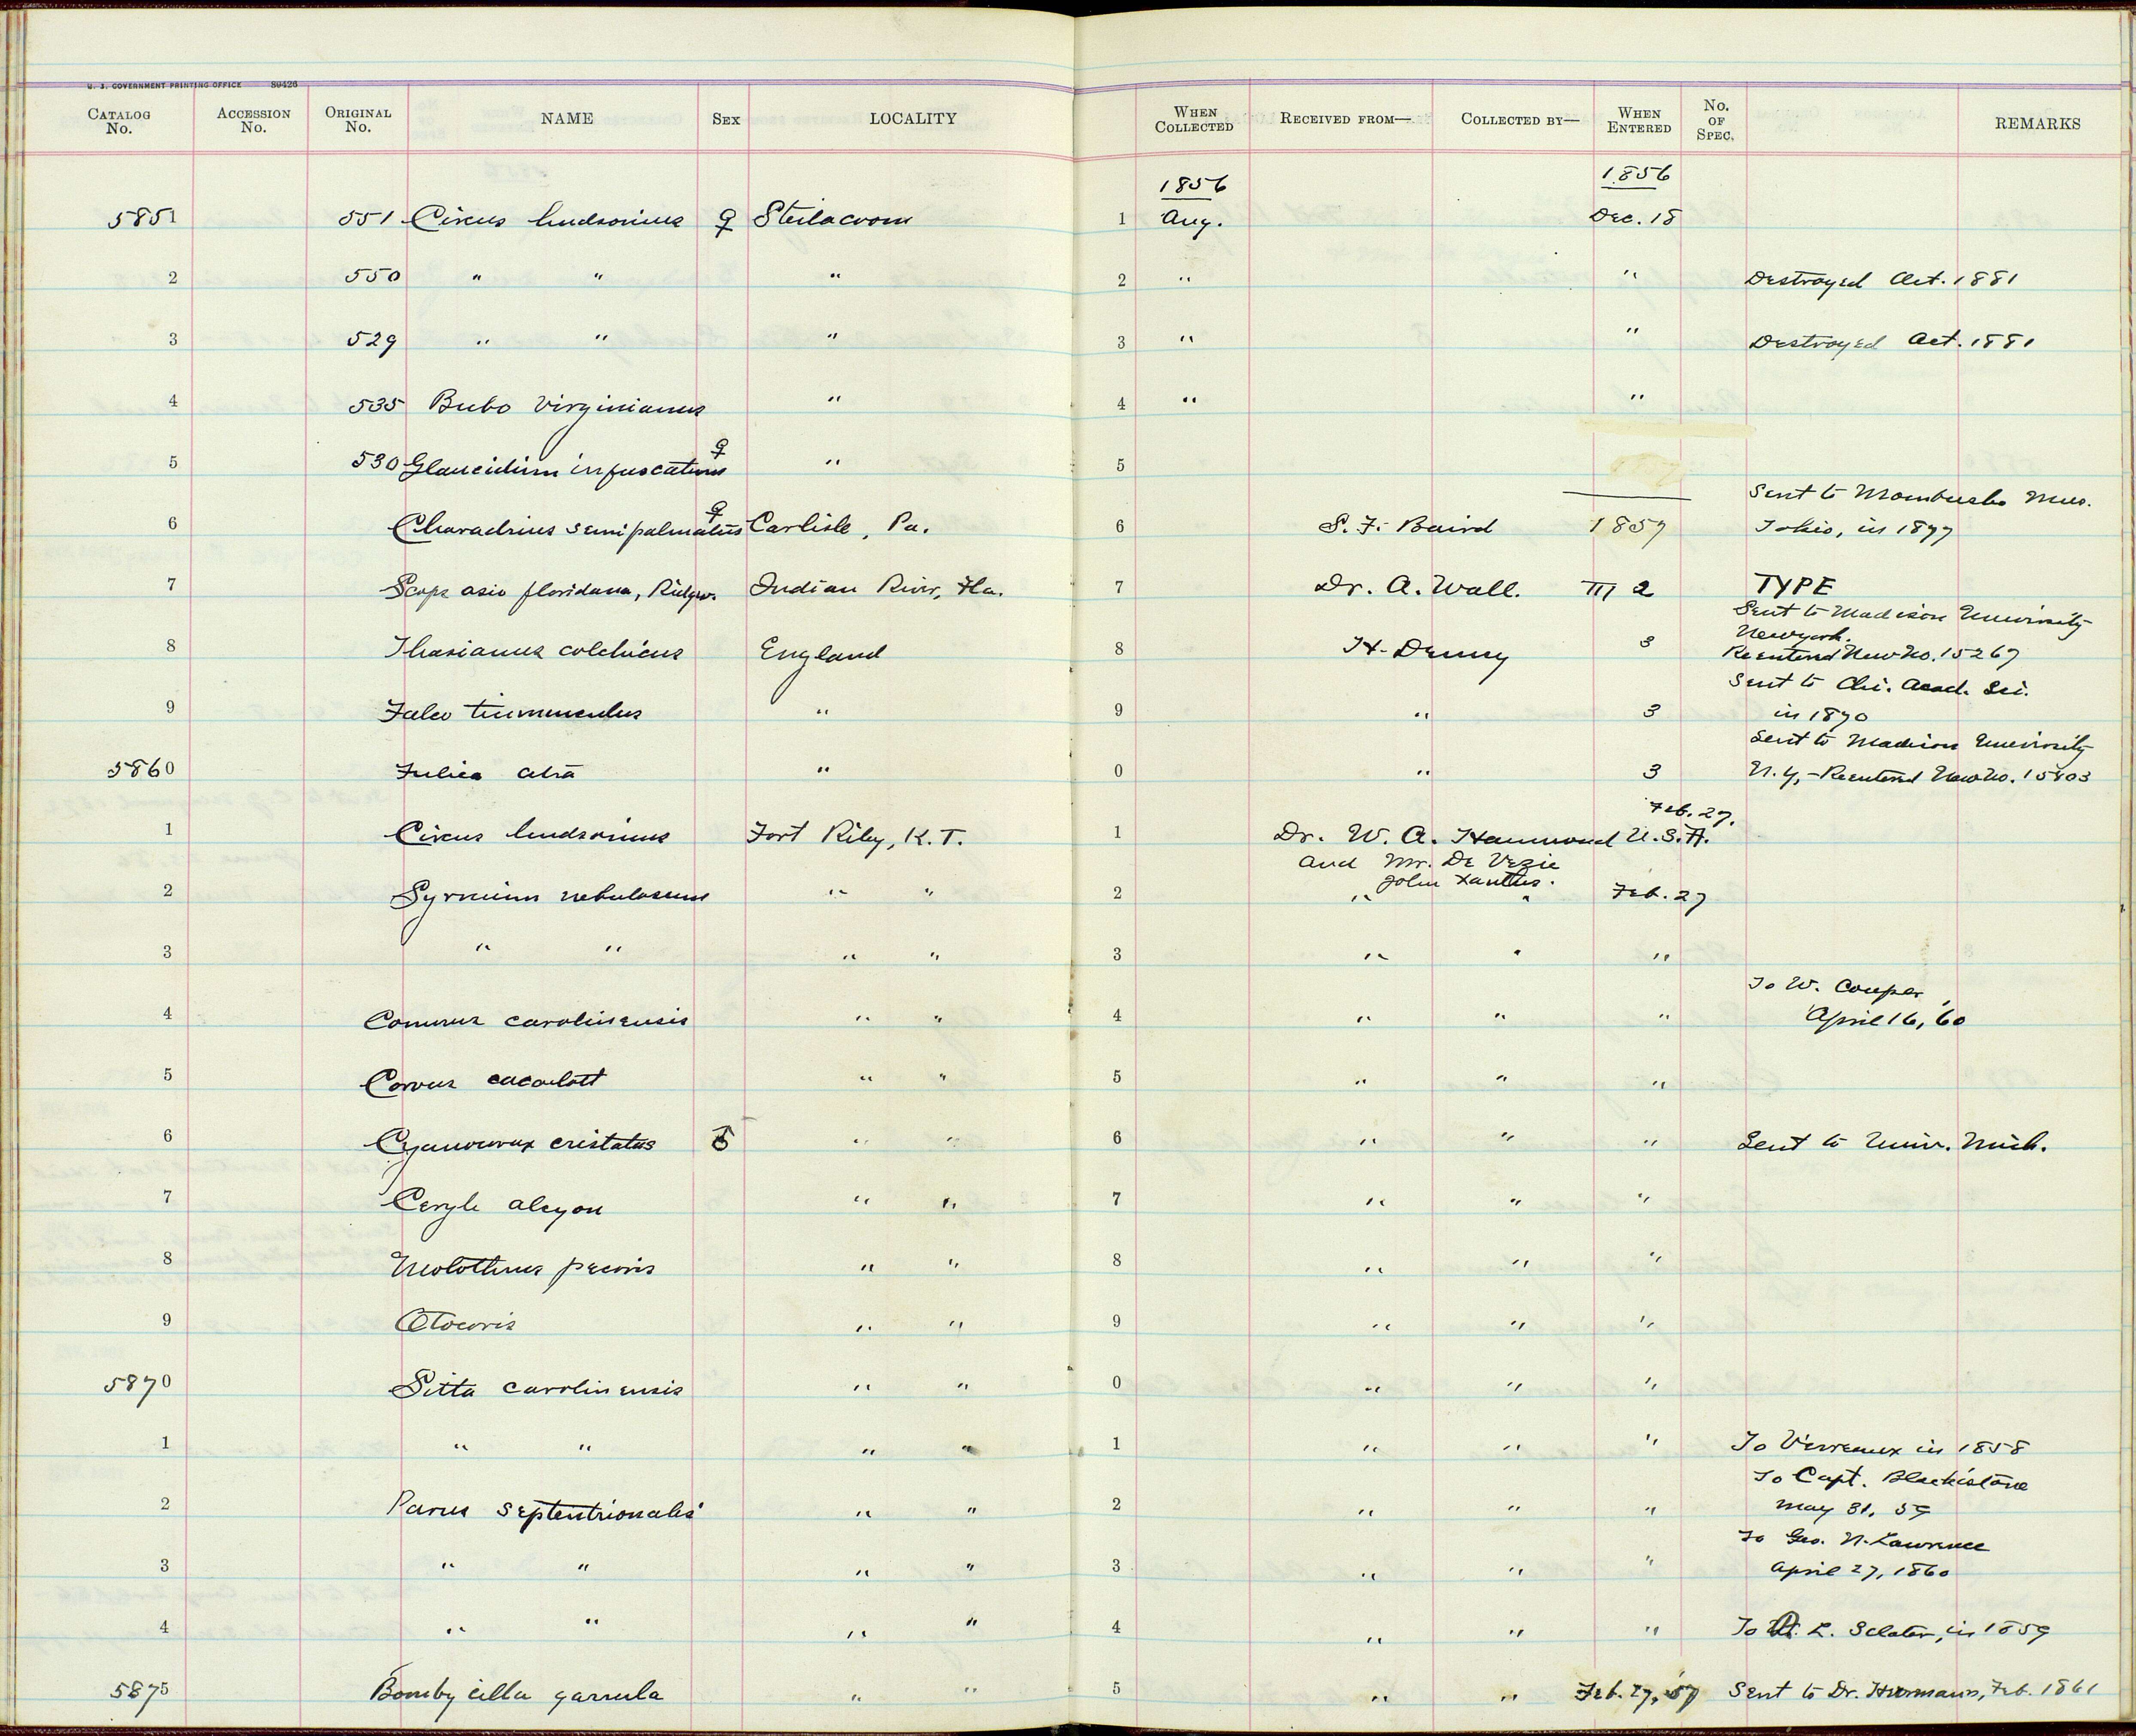 U. S. GOVERNMENT PRINTING OFFICE 89426
CATALOG No. ACCESSION No. ORIGINAL No. NAME SEX LOCALITY WHEN COLLECTED RECEIVED FROM— COLLECTED BY— WHEN ENTERED No. OF SPEC. REMARKS
1856 1856
5851 551 Circus hudsonius ♀ Steilacoom 1 Aug. Dec. 18
2 550 " " " 2 " " Destroyed Oct. 1881
3 529 " " " 3 " " Destroyed Oct. 1881
4 535 Bubo virginianus " 4 " "
5 530 Glaucidium infuscatum ♀ " 5
Sent to Mombusho Mus.
6 Charadrius semipalmatus ♀ Carlisle, Pa. 6 S. F. Baird 1857 Tokio, in 1877
7 Scops asio floridana, Ridgw. Indian River, Fla. 7 Dr. A. Wall. III 2 TYPE
Sent to Madison University
Newyork.
8 Phasianus colchicus England 8 H. Denny 3 Reentered New No. 15267
Sent to Chi. Acad. Sci.
9 Falco tinnunculus " 9 " 3 in 1870
Sent to Madison University
5860 Fulica atra " 0 " 3 N.Y.,-Reentered New No. 15803
Feb. 27.
1 Circus hudsonius Fort Riley, K. T. 1 Dr. W. A. Hammond U.S.A.
and Mr. De Vezie
John Xantus.
2 Syrnium nebulosum " " 2 " " Feb. 27
3 " " " " 3 " " "
To W. Couper,
4 Conurus carolinensis " " 4 " " " April 16, 60
5 Corvus cacalott " " 5 " " "
6 Cyanocorax cristatus ♂ " " 6 " " " Sent to Univ. Mich.
7 Ceryle alcyon " " 7 " " "
8 Molothrus pecoris " " 8 " " "
9 Otocoris " " 9 " " "
5870 Sitta carolinensis " " 0 " " "
1 " " " " 1 " " " To Verreaux in 1858
To Capt. Blackistone
2 Parus septentrionalis " " 2 " " " May 31, 59
To Geo. N. Lawrence
3 " " " " 3 " " " April 27, 1860
4 " " " " 4 " " " To L. Sclater, in 1859
5875 Bombycilla garrula " " 5 " " Feb. 27, 57 Sent to Dr. Hermann, Feb. 1861